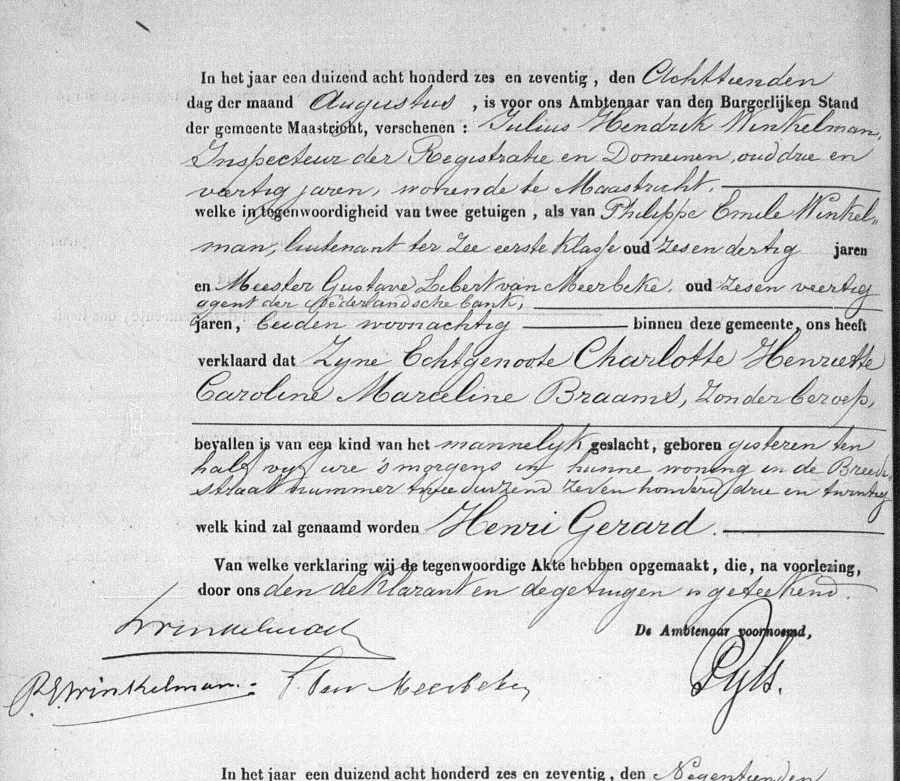 In het jaar een duizend acht honderd zes en zeventig, den Achttienden
dag der maand Augustus, is voor ons Ambtenaar van den Burgerlijken Stand
der gemeente Maastricht, verschenen: Julius Hendrik Winkelman,
Inspecteur der Registratie en Domeinen, oud drie en
veertig jaren, wonende te Maastricht,
welke in tegenwoordigheid van twee getuigen, als van Philippe Emile Winkel„
man, luitenant ter Zee eerste Klasse oud zes en dertig jaren
en Meester Gustave Libert van Meerbeke, oud zes en veertig
agent der Nederlandsche bank,
jaren, beiden woonachtig binnen deze gemeente, ons heeft
verklaard dat Zyne Echtgenoote Charlotte Henriette
Caroline Marceline Braams, zonder beroep,
bevallen is van een kind van het mannelyk geslacht, geboren gisteren ten
half vyf ure 's morgens in hunne woning in de Breede
straat nummer twee duizend zeven honderd drie en twintig
welk kind zal genaamd worden Henri Gerard.
Van welke verklaring wij de tegenwoordige Akte hebben opgemaakt, die, na voorlezing,
door ons den deklarant en de getuigen is geteekend.
De Ambtenaar voornoemd,
Winkelman
P.E. Winkelman. van Meerbeke
Pyls.
In het jaar een duizend acht honderd zes en zeventig, den Negentienden